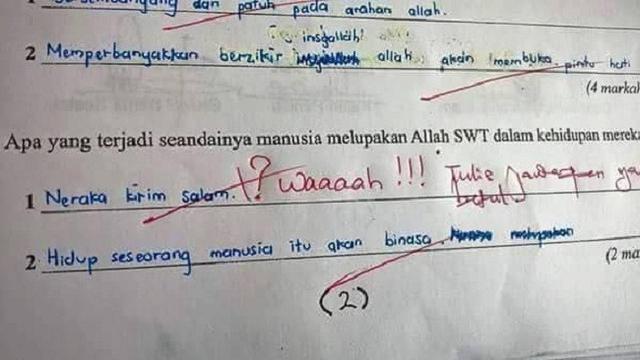 dan patuh pada arahan allah.
insyallah!
2 Memperbanyakkan berzikir allah, akan membuka pintu hati
(4 markah
Apa yang terjadi seandainya manusia melupakan Allah SWT dalam kehidupan mereka
1 Neraka kirim salam. ? Waaaah !!! Julie Jawapan ya
betul.
2 Hidup seseorang manusia itu akan binasa.
(2 ma
(2)